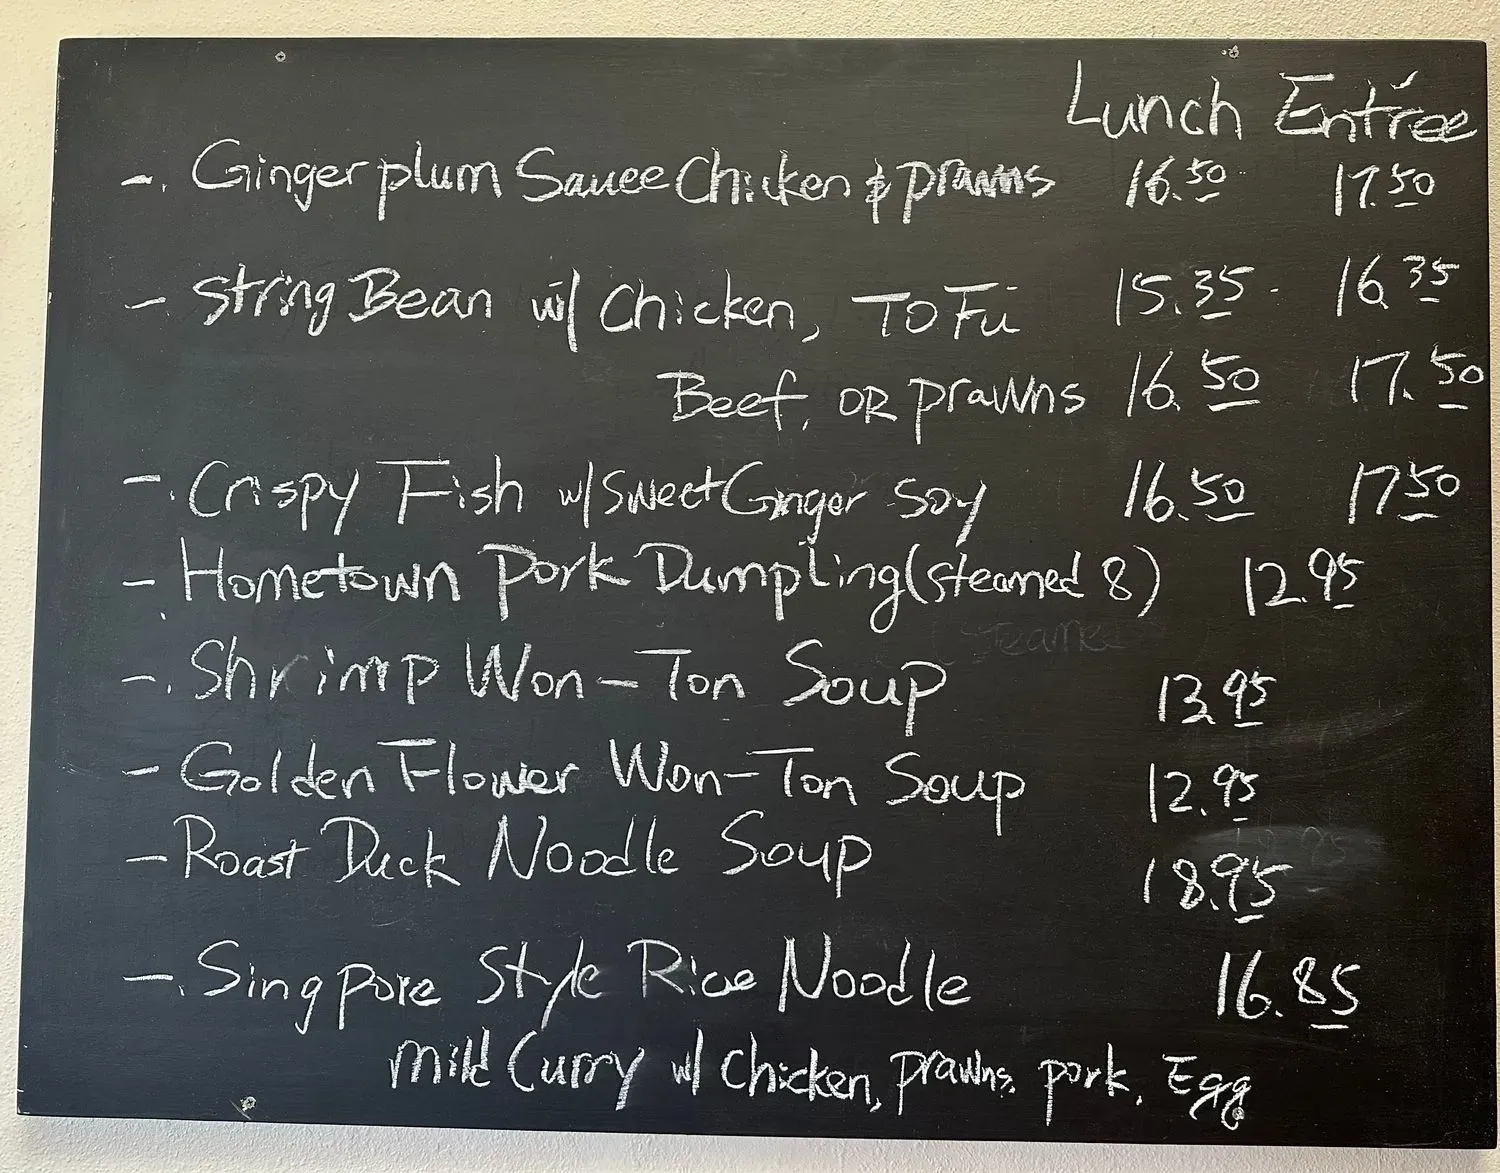 Lunch Entrée
-. Ginger plum Sauce Chicken & prawns 16.50 17.50
- String Bean w/ Chicken, ToFu 15.35 - 16.35
Beef, OR prawns 16.50 17.50
-. Crispy Fish w/ Sweet Ginger Soy 16.50 17.50
-. Hometown Pork Dumpling (steamed 8) 12.95
steamed
-. Shrimp Won-Ton Soup 13.95
- Golden Flower Won-Ton Soup 12.95
- Roast Duck Noodle Soup 18.95
-. Singpore Style Rice Noodle 16.85
mild Curry w/ Chicken, prawns, pork, Egg